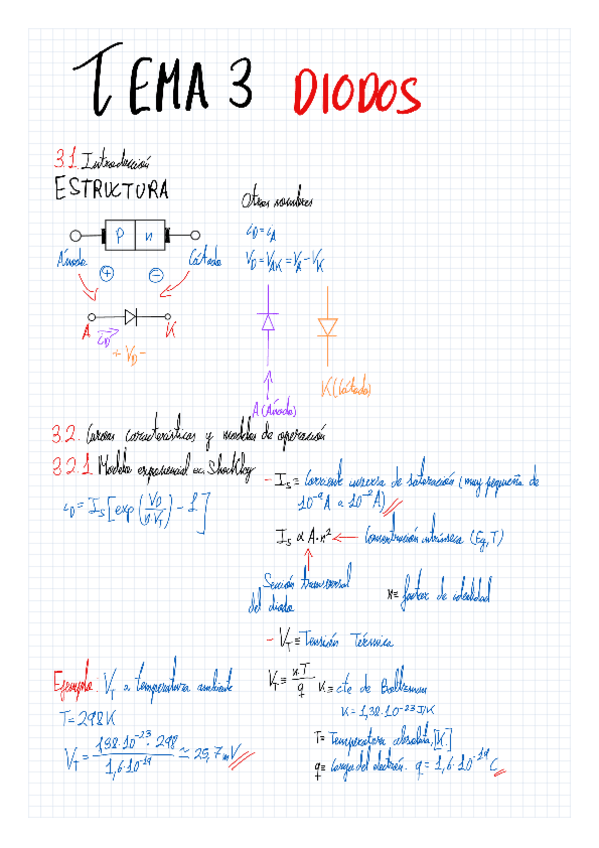 TEMA 3 DIODOS
3.1 Introducción
ESTRUCTURA
Otros nombres
P n
Ánodo Cátodo
+ −
A K
i_D
+ V_D −
i_D = i_A
V_D = V_AK = V_A − V_K
A (Ánodo)
K (Cátodo)
3.2. Curvas características y modelos de operación
3.2.1 Modelo exponencial ec. Shockley
i_D = I_S [exp (V_D / n·V_T) − 1]
− I_S ≡ Corriente inversa de saturación (muy pequeña de
10^-9 A a 10^-2 A)
I_S ∝ A·n_i^2 ← Concentración intrínseca (Eg, T)
Sección transversal
del diodo
n ≡ factor de idealidad
− V_T ≡ Tensión Térmica
V_T ≡ K T / q K ≡ cte de Boltzman
K = 1,38·10^-23 J/K
T ≡ Temperatura absoluta, [K]
q ≡ Carga del electrón. q = 1,6·10^-19 C
Ejemplo: V_T a temperatura ambiente
T = 298 K
V_T = 1,38·10^-23 · 298 / 1,6·10^-19 ≃ 25,7 mV